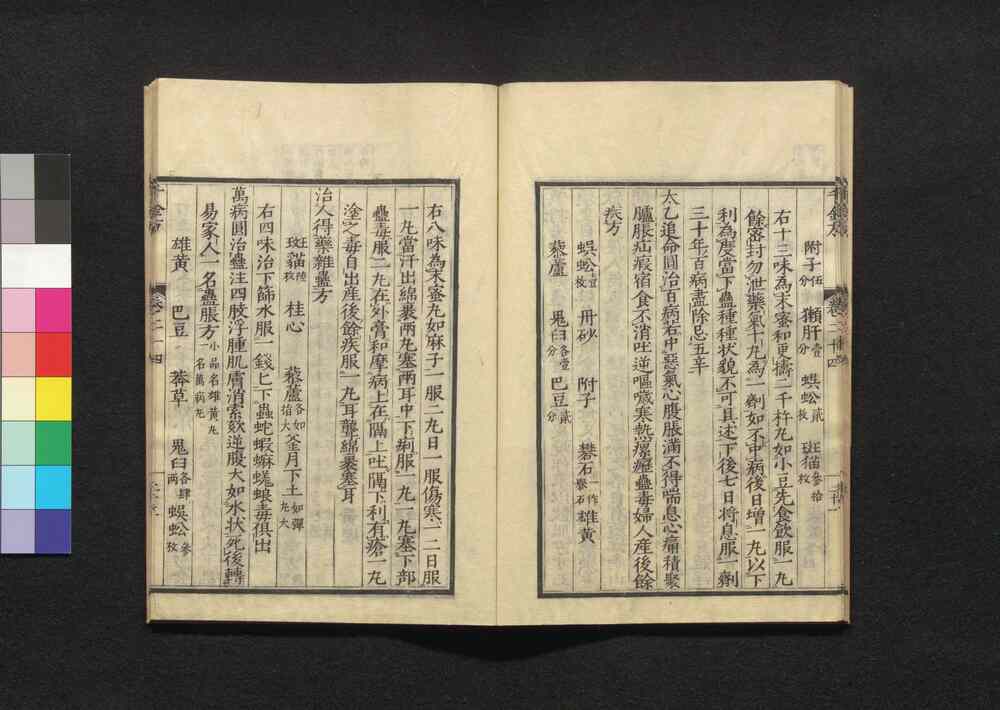 附子伍分 獺肝壹分 蜈蚣貳枚 斑猫參拾枚
右十三味為末蜜和更擣二千杵丸如小豆先食飲服一丸
餘密封勿泄藥氣十丸為一劑如不中病後日增一丸以下
利為度當下蠱種種狀貌不可具述下後七日將息服一劑
三十年百病盡除忌五辛
太乙追命圓治百病若中惡氣心腹脹滿不得喘息心痛積聚
臚脹疝瘕宿食不消吐逆嘔噦寒熱瘰癧蠱毒婦人產後餘
疾方
蜈蚣壹枚 丹砂 附子 礬石一作礜石 雄黃
藜蘆 鬼臼各壹分 巴豆貳分
右八味為末蜜丸如麻子一服二丸日一服傷寒一二日服
一丸當汗出綿裹兩丸塞兩耳中下痢服一丸一丸塞下部
蠱毒服二丸在外膏和摩病上在膈上吐膈下利有瘡一丸
塗之毒自出產後餘疾服一丸耳聾綿裹塞耳
治人得藥雜蠱方
斑貓陸枚 桂心 藜蘆各如指大 釜月下土如彈丸大
右四味治下篩水服一錢匕下蟲蛇蝦蟆蜣蜋毒俱出
萬病圓治蠱注四肢浮腫肌膚消索欬逆腹大如水狀死後轉
易家人一名蠱脹方小品名雄黃丸一名萬病丸
雄黃 巴豆 莽草 鬼臼各肆兩 蜈蚣參枚
卷之二十四